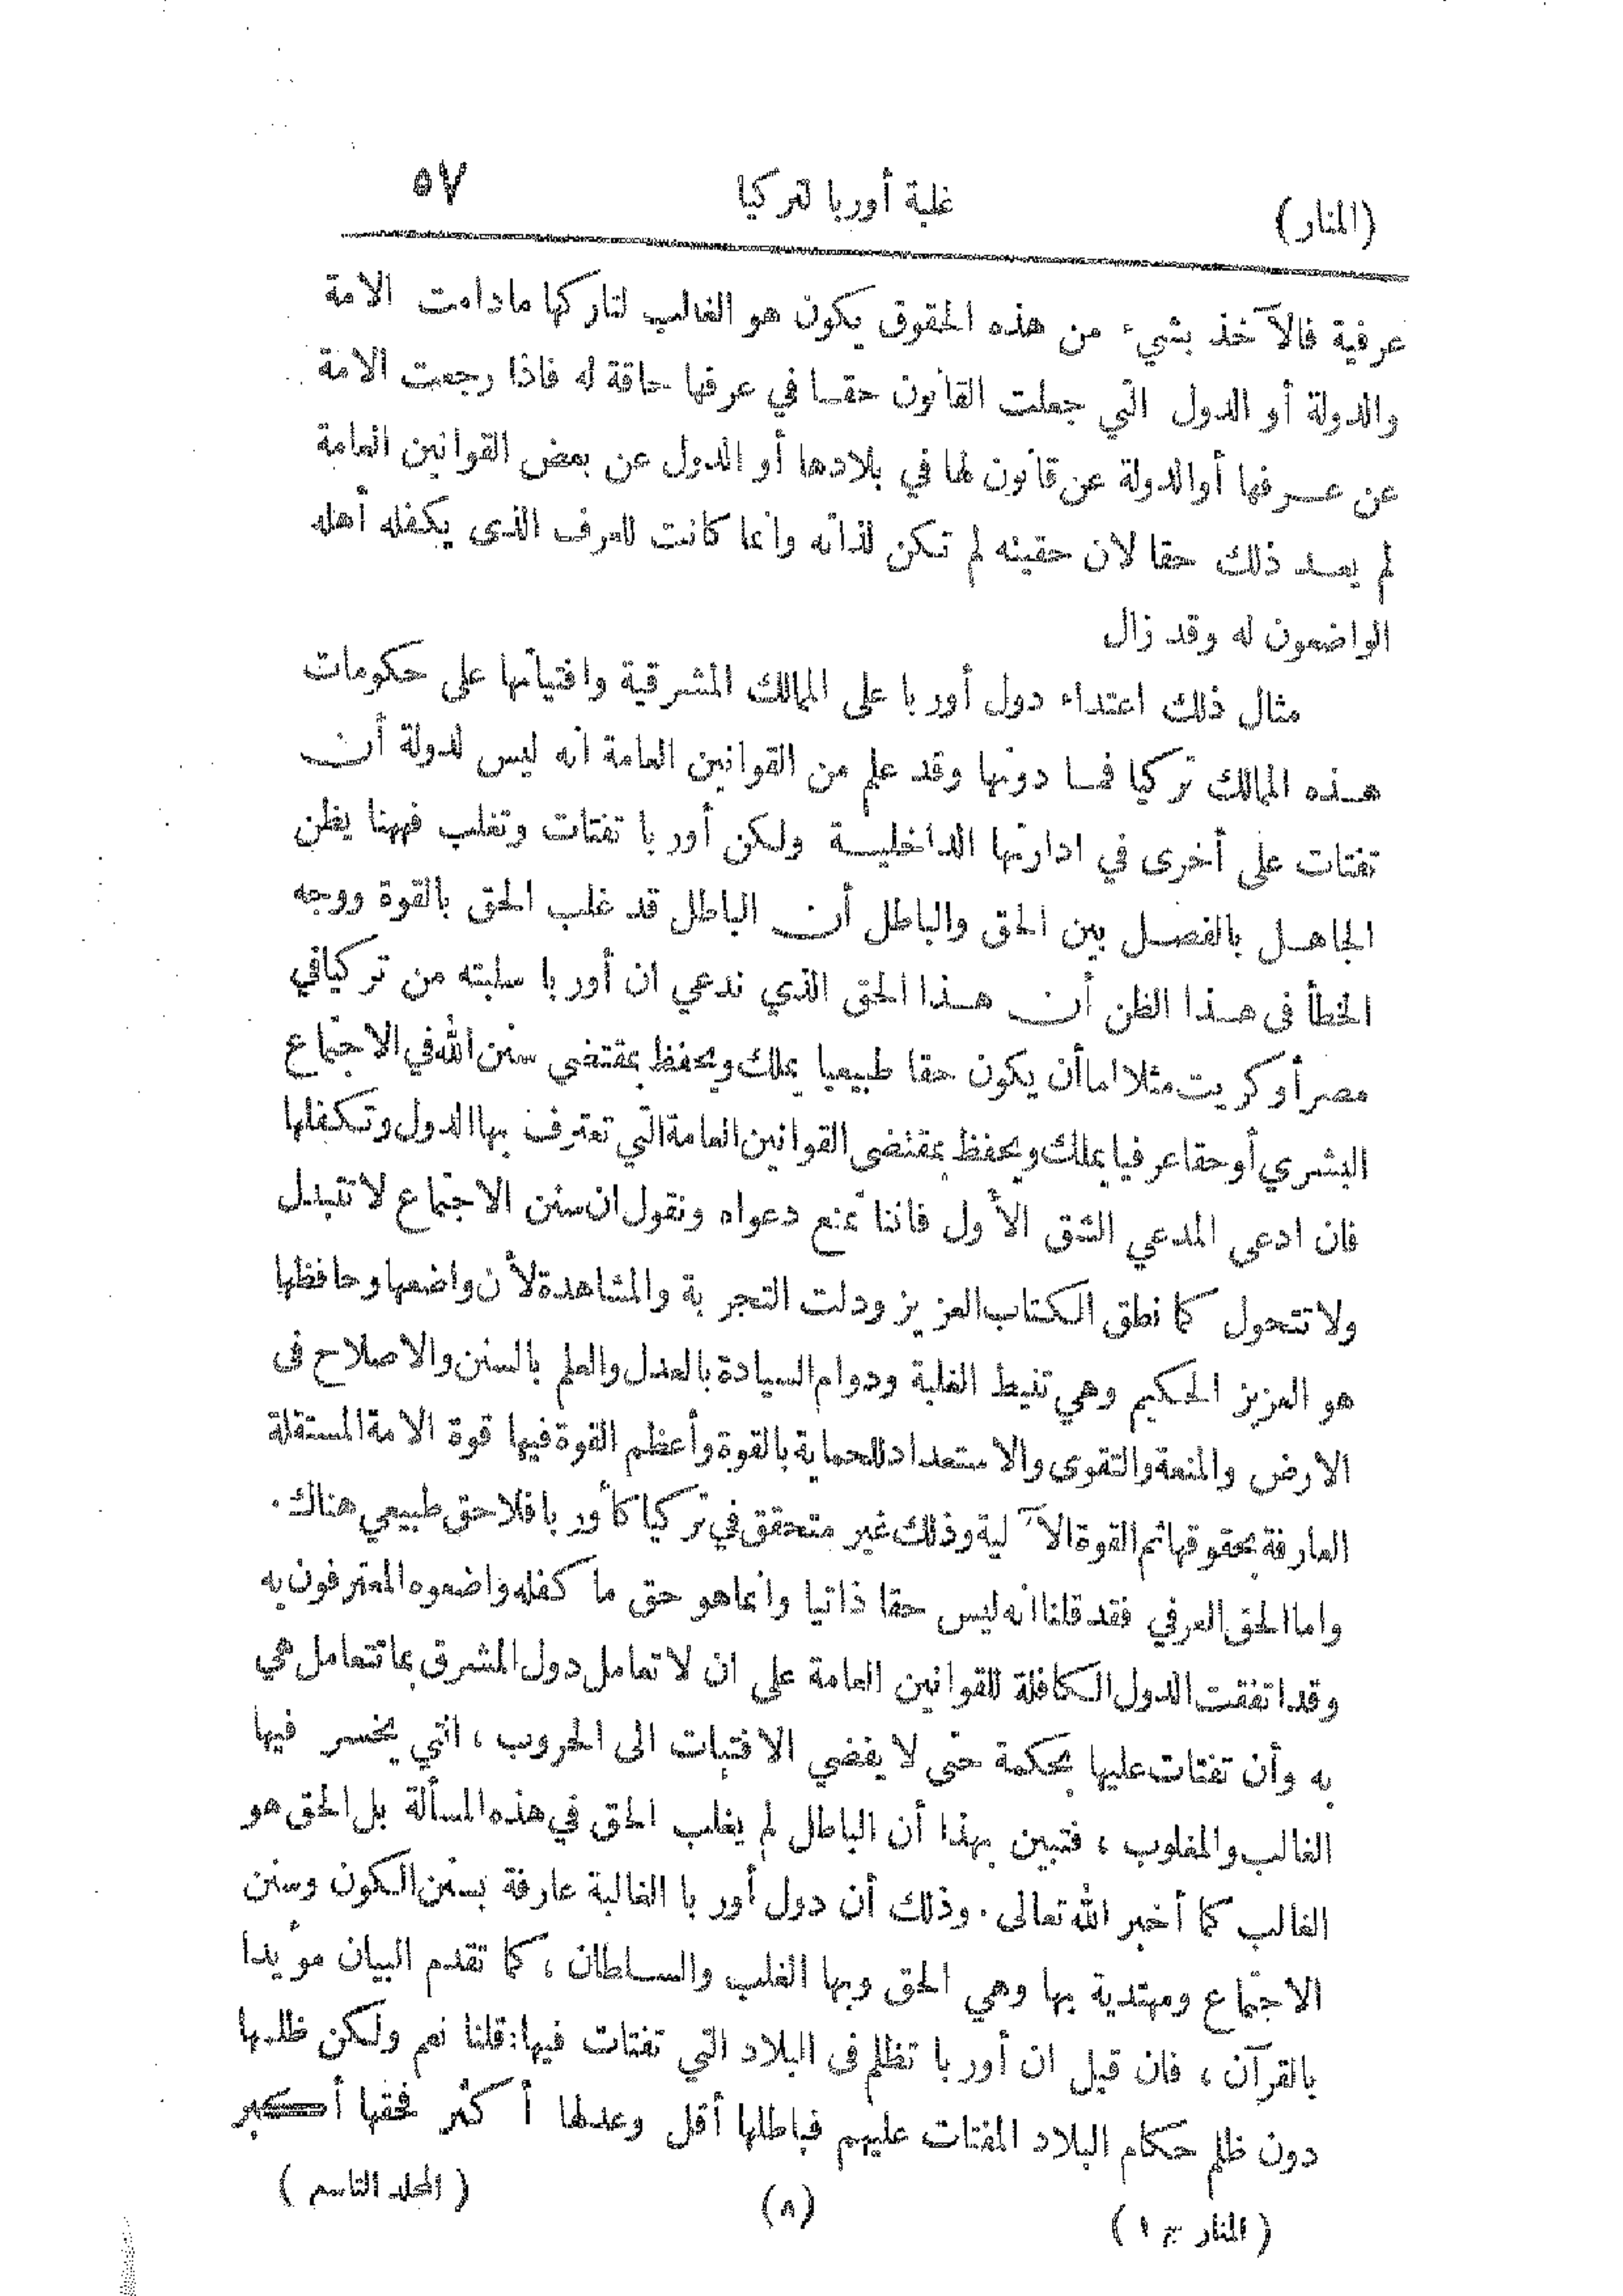 (المنار) غلبة أوربا لتركيا ٥٧
عرفية فالآخذ بشيء من هذه الحقوق يكون هو الغالب لتاركها مادامت الامة
والدولة أو الدول التي جعلت القانون حقا في عرفها حاقة له فاذا رجعت الامة
عن عرفها أوالدولة عن قانون لها في بلادها أو الدول عن بعض القوانين العامة
لم يعد ذلك حقا لان حقيته لم تكن لذاته وانما كانت للعرف الذى يكفله أهله
الواضعون له وقد زال
مثال ذلك اعتداء دول أوربا على الممالك المشرقية وافتياتها على حكومات
هذه الممالك تركيا فما دونها وقد علم من القوانين العامة انه ليس لدولة أن
تفتات على أخرى في ادارتها الداخلية ولكن أوربا تفتات وتغلب فههنا يظن
الجاهل بالفصل بين الحق والباطل أن الباطل قد غلب الحق بالقوة ووجه
الخطأ فى هذا الظن أن هذا الحق الذي ندعي ان أوربا سلبته من تركيافي
مصر أو كريت مثلا اما أن يكون حقا طبيعيا يملك ويحفظ بمقتضى سنن الله في الاجتماع
البشري أو حقا عرفيا يملك ويحفظ بمقتضى القوانين العامة التي تعترف بها الدول وتكفلها
فان ادعى المدعي الشق الأول فاننا نمنع دعواه ونقول ان سنن الاجتماع لا تتبدل
ولا تتحول كما نطق الكتاب العزيز ودلت التجربة والمشاهدة لأن واضعها وحافظها
هو العزيز الحكيم وهي تنيط الغلبة ودوام السيادة بالعدل والعلم بالسنن والاصلاح فى
الارض والمنعة والتقوى والاستعداد للحماية بالقوة وأعظم القوة فيها قوة الامة المستقلة
العارفة بحقوقها ثم القوة الآلية وذلك غير متحقق في تركيا كأوربا فلا حق طبيعي هناك.
واما الحق العرفي فقد قلنا انه ليس حقا ذاتيا وانما هو حق ما كفله واضعوه المعترفون به
وقد اتفقت الدول الكافلة للقوانين العامة على ان لا تعامل دول المشرق بما تتعامل هي
به وأن تفتات عليها بحكمة حتى لا يفضي الافتيات الى الحروب ، التي يخسر فيها
الغالب والمغلوب ، فتبين بهذا أن الباطل لم يغلب الحق في هذه المسألة بل الحق هو
الغالب كما أخبر الله تعالى . وذلك أن دول أوربا الغالبة عارفة بسنن الكون وسنن
الاجتماع ومهتدية بها وهي الحق وبها الغلب والسلطان ، كما تقدم البيان مؤيدا
بالقرآن ، فان قيل ان أوربا تظلم فى البلاد التي تفتات فيها : قلنا نعم ولكن ظلمها
دون ظلم حكام البلاد المفتات عليهم فباطلها أقل وعدلها أكثر فحقها أكبر
(المنار ج ١) (٨) (المجلد التاسع)